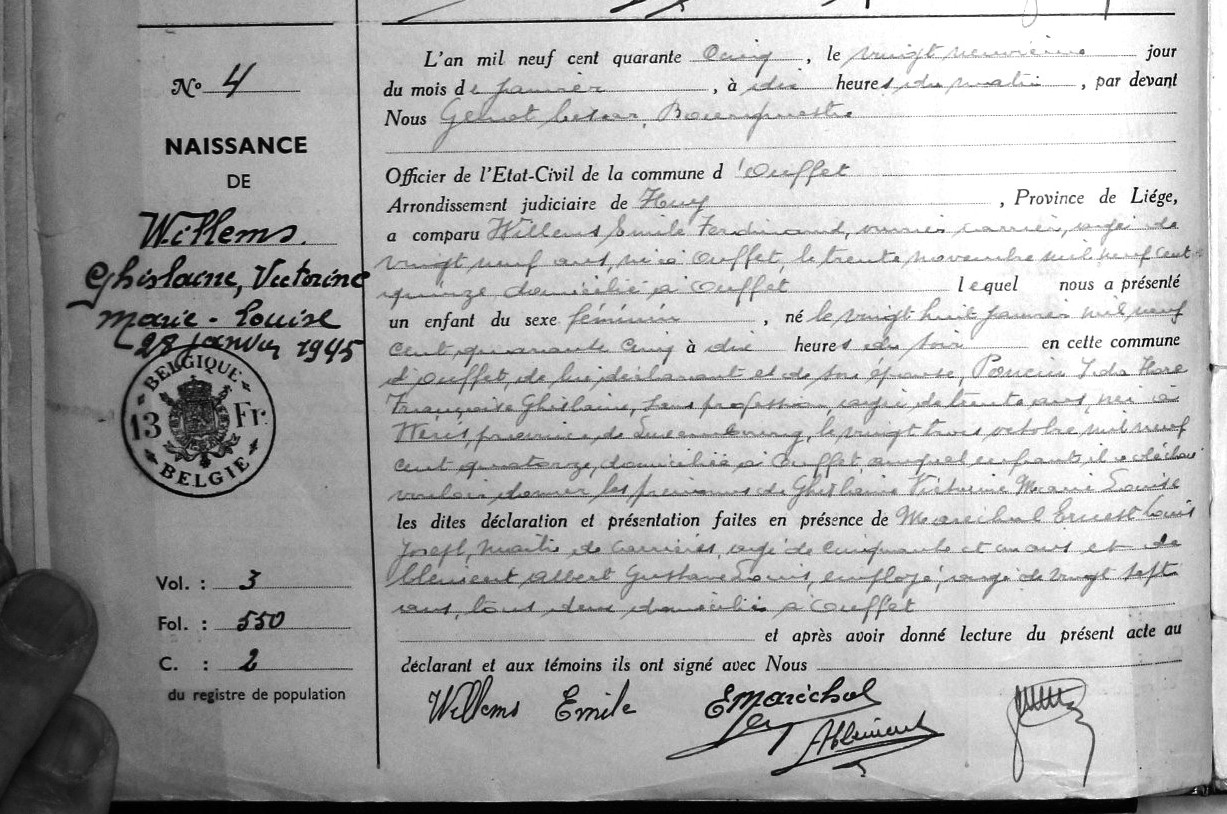 No 4
NAISSANCE
DE
Willems.
Ghislaine, Victorine
Marie-Louise
28 janvier 1945
BELGIQUE
13 Fr.
BELGIE
Vol. : 3
Fol. : 550
C. : 2
du registre de population
L'an mil neuf cent quarante cinq, le vingt neuvième jour
du mois de janvier, à dix heures du matin, par devant
Nous Bourgmestre
Officier de l'Etat-Civil de la commune d'Ouffet
Arrondissement judiciaire de Huy, Province de Liége,
a comparu Willems Emile Ferdinand, ouvrier carrier, âgé de
vingt neuf ans, né à Ouffet, le trente novembre mil neuf cent
quinze domicilié à Ouffet lequel nous a présenté
un enfant du sexe féminin, né le vingt huit janvier mil neuf
cent quarante cinq à dix heures du soir en cette commune
d'Ouffet, de lui déclarant et de son épouse, Ida
Françoise Ghislaine, sans profession, âgée de trente ans, née à
Wéris, province de Luxembourg, le vingt trois octobre mil neuf
cent quatorze, domiciliée à Ouffet, auquel enfant il a déclaré
vouloir donner les prénoms de Ghislaine Victorine Marie Louise
les dites déclaration et présentation faites en présence de Maréchal Ernest Louis
Joseph, Maître de carrières, âgé de cinquante et un ans et de
Clément Albert Gustave Louis, employé, âgé de vingt sept
ans, tous deux domiciliés à Ouffet
et après avoir donné lecture du présent acte au
déclarant et aux témoins ils ont signé avec Nous
Willems Emile EMaréchal
AClément